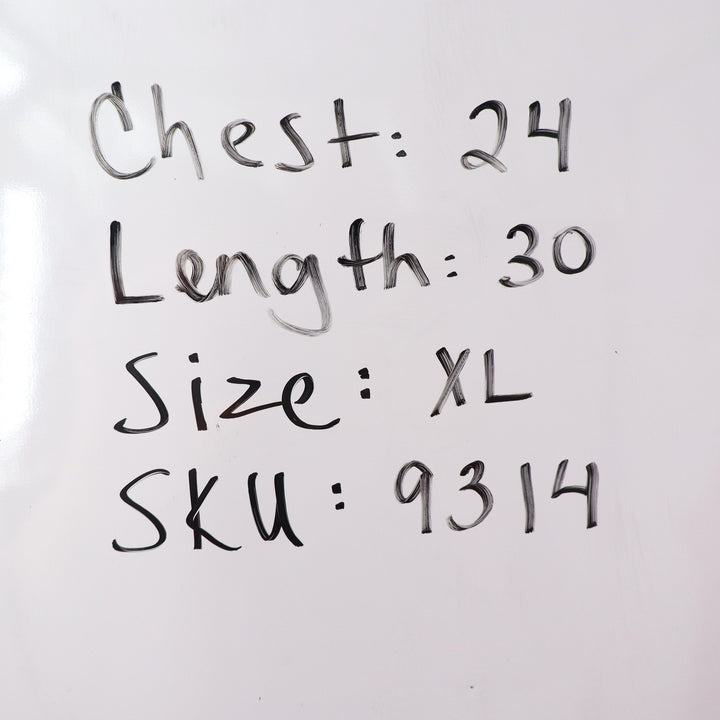 Chest: 24
Length: 30
Size: XL
SKU: 9314